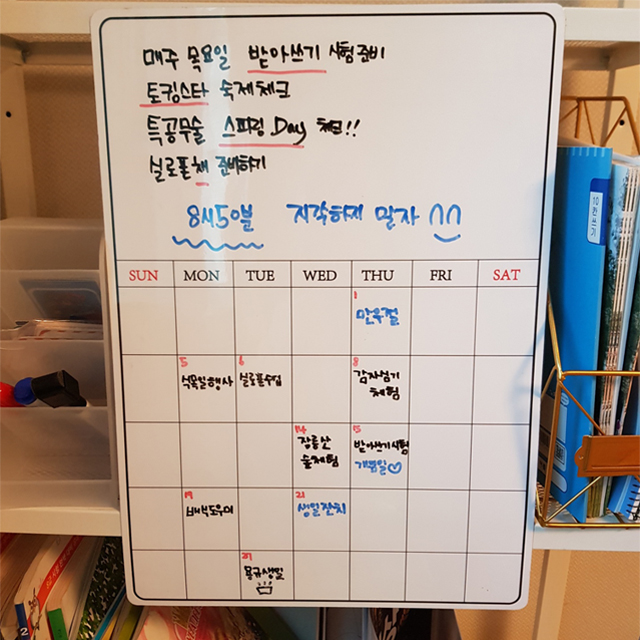 매주 목요일 받아쓰기 시험준비
토킹스타 숙제체크
특공무술 스피킹 Day 체크!!
실로폰채 준비하기
8시50분 지각하지 말자
SUN MON TUE WED THU FRI SAT
1
만우절
5 6 8
식목일행사 실로폰수업 감자심기
체험
14 15
장릉산 받아쓰기시험
숲체험 개봉일♡
19 21
배식도우미 생일잔치
27
몽규생일
10
칸쓰기
2